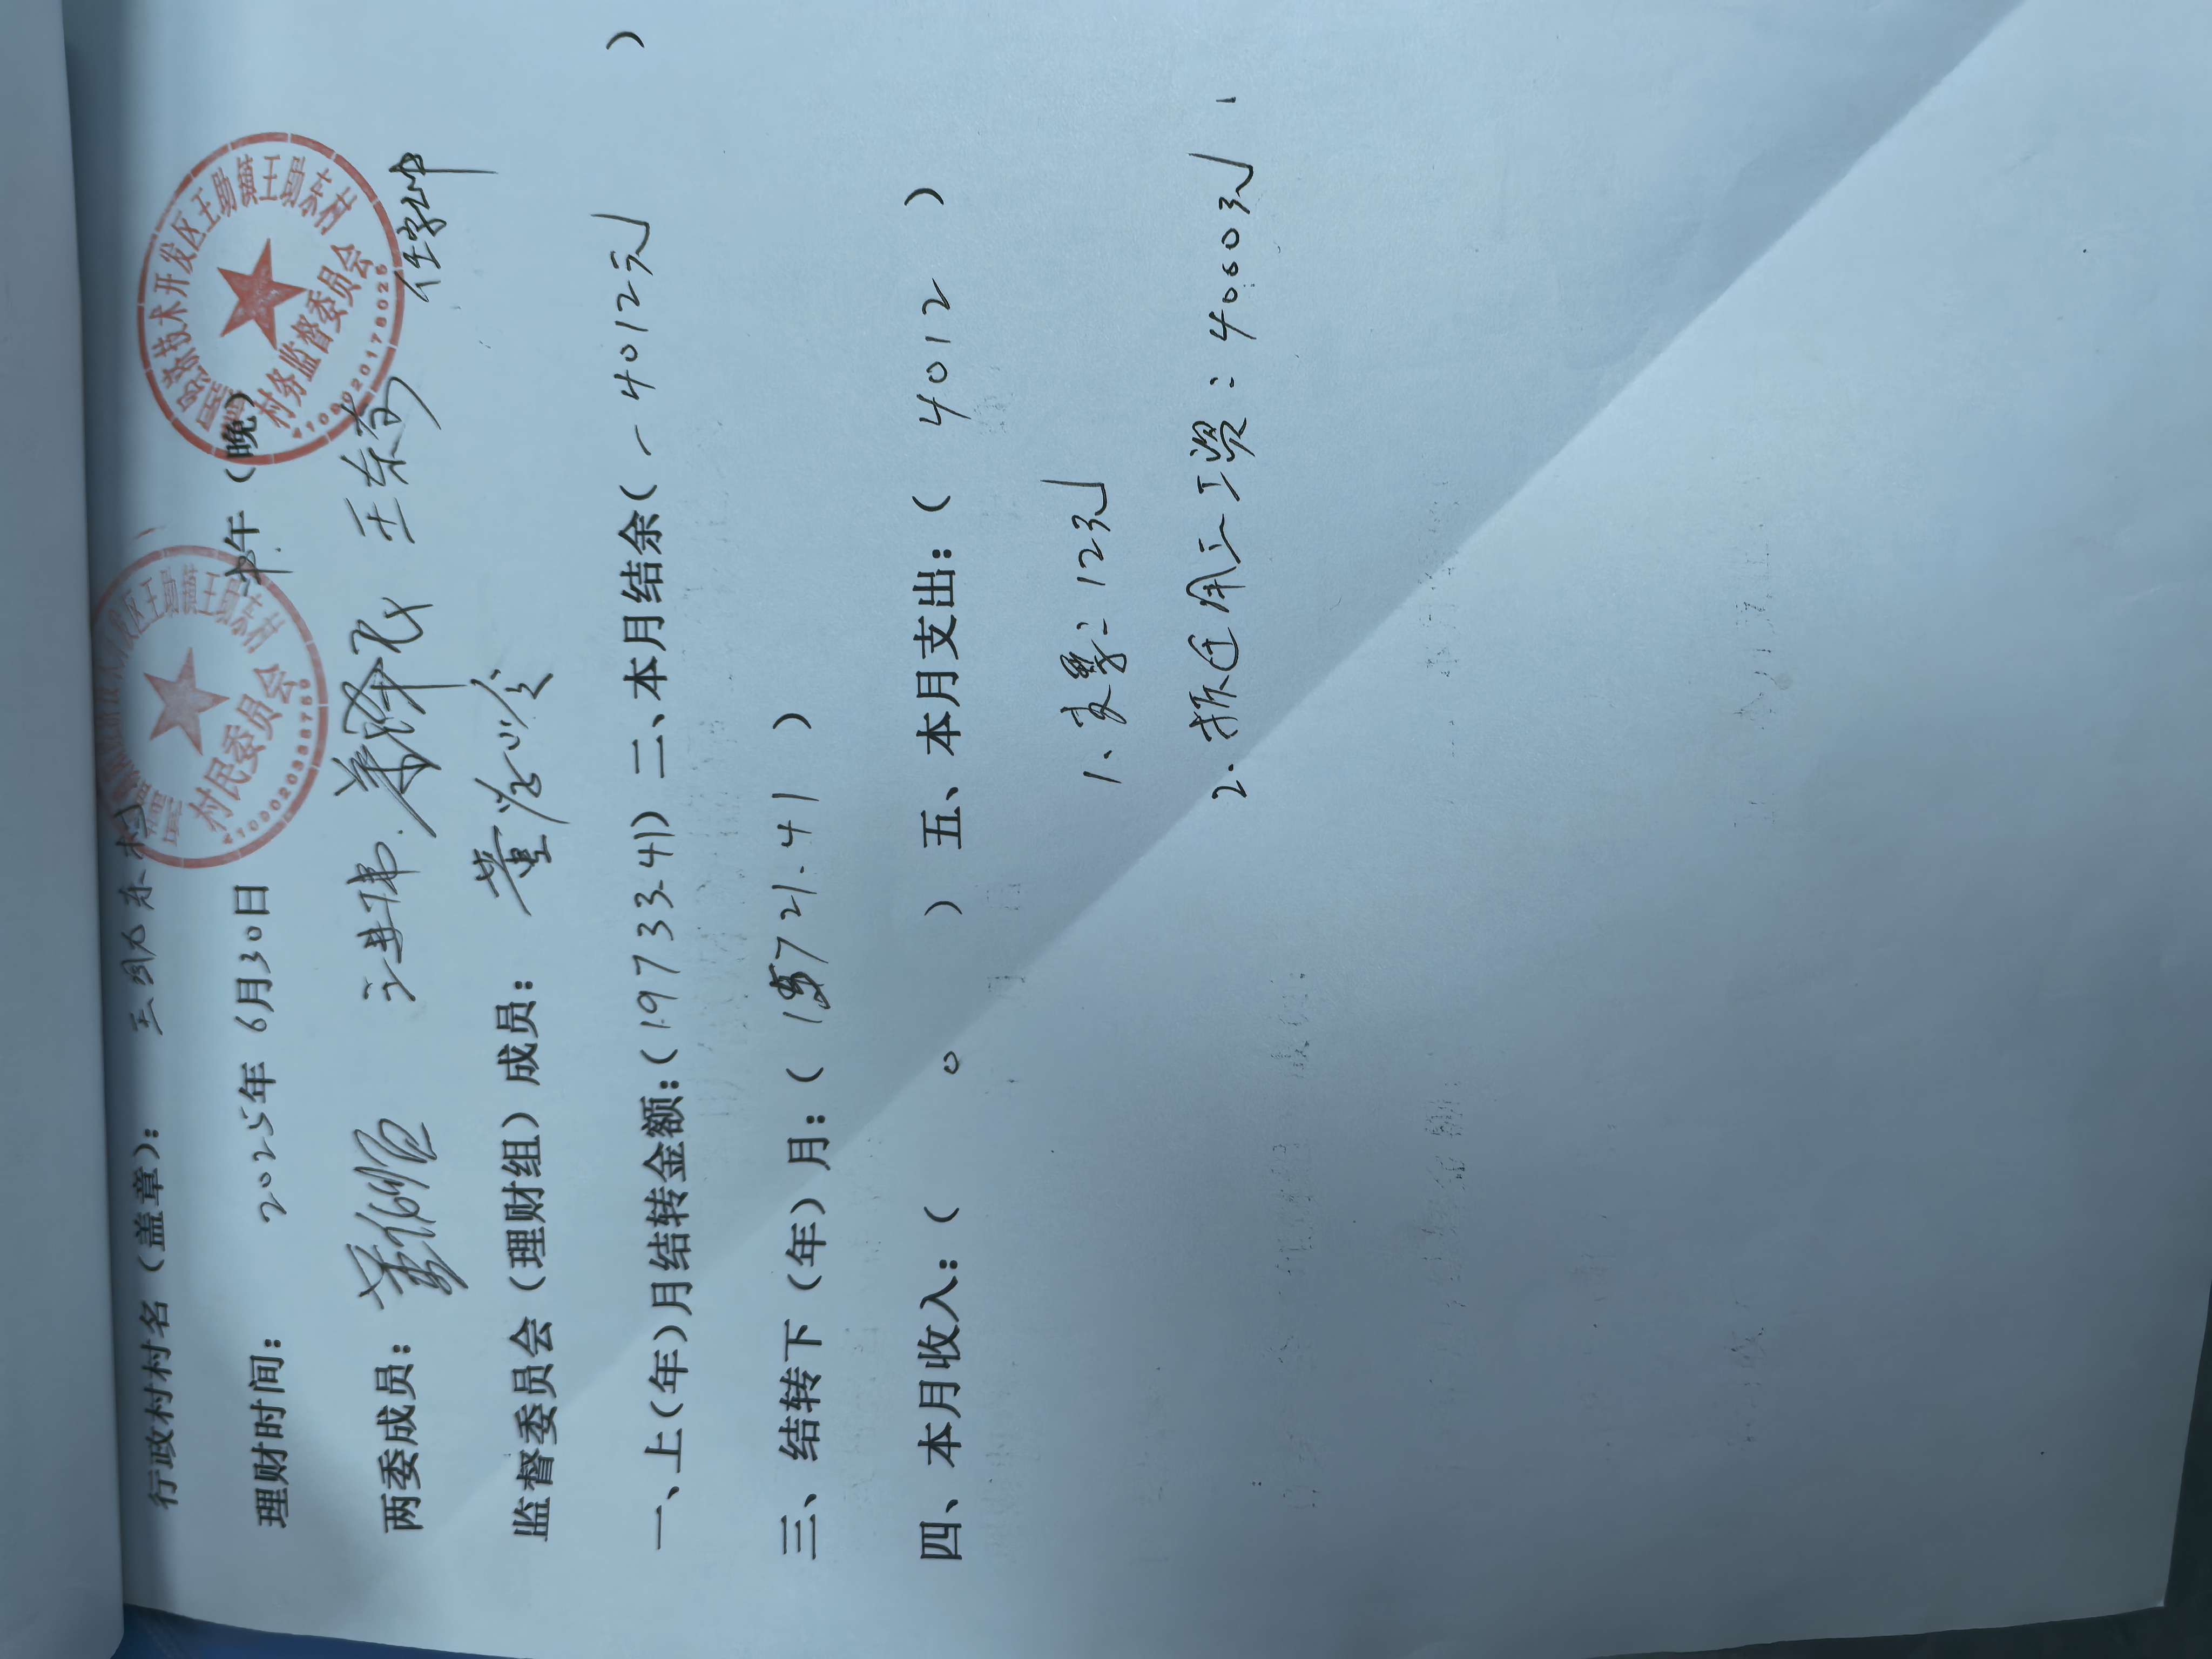 行政村村名（盖章）： 王助东村
理财时间： 2025年 6月30日 午（晚）
两委成员： 王东
监督委员会（理财组）成员： 董
一、上（年）月结转金额：（19733.41）二、本月结余（-4012元 ）
三、结转下（年）月：（ 15721.41 ）
四、本月收入：（ 0 ）五、本月支出：（ 4012 ）
1、支票：12元
2、拆迁用工工资：4000元
技术开发区王助镇王助东村
村民委员会
技术开发区王助镇王助东村
村务监督委员会